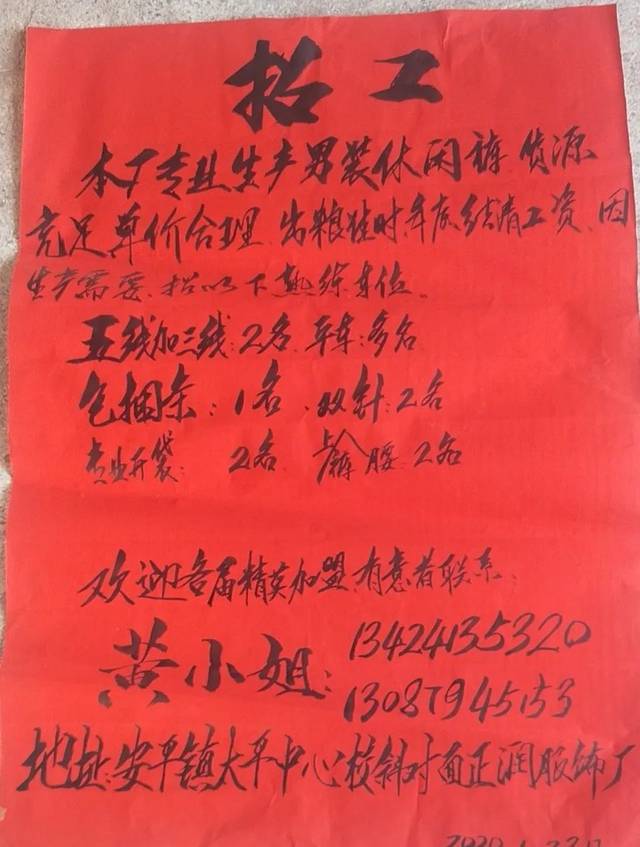 招工
本厂专业生产男装休闲裤 货源
充足 单价合理 出粮准时 年底结清工资 因
生产需要 招以下熟练车位
五线加三线: 2名 平车: 多名
包捆条: 1名 双针: 2名
专业开袋: 2名 上裤腰 2名
欢迎各届精英加盟 有意者联系
黄小姐: 13424135320
13087945153
地址: 安平镇大平中心校斜对面正润服饰厂